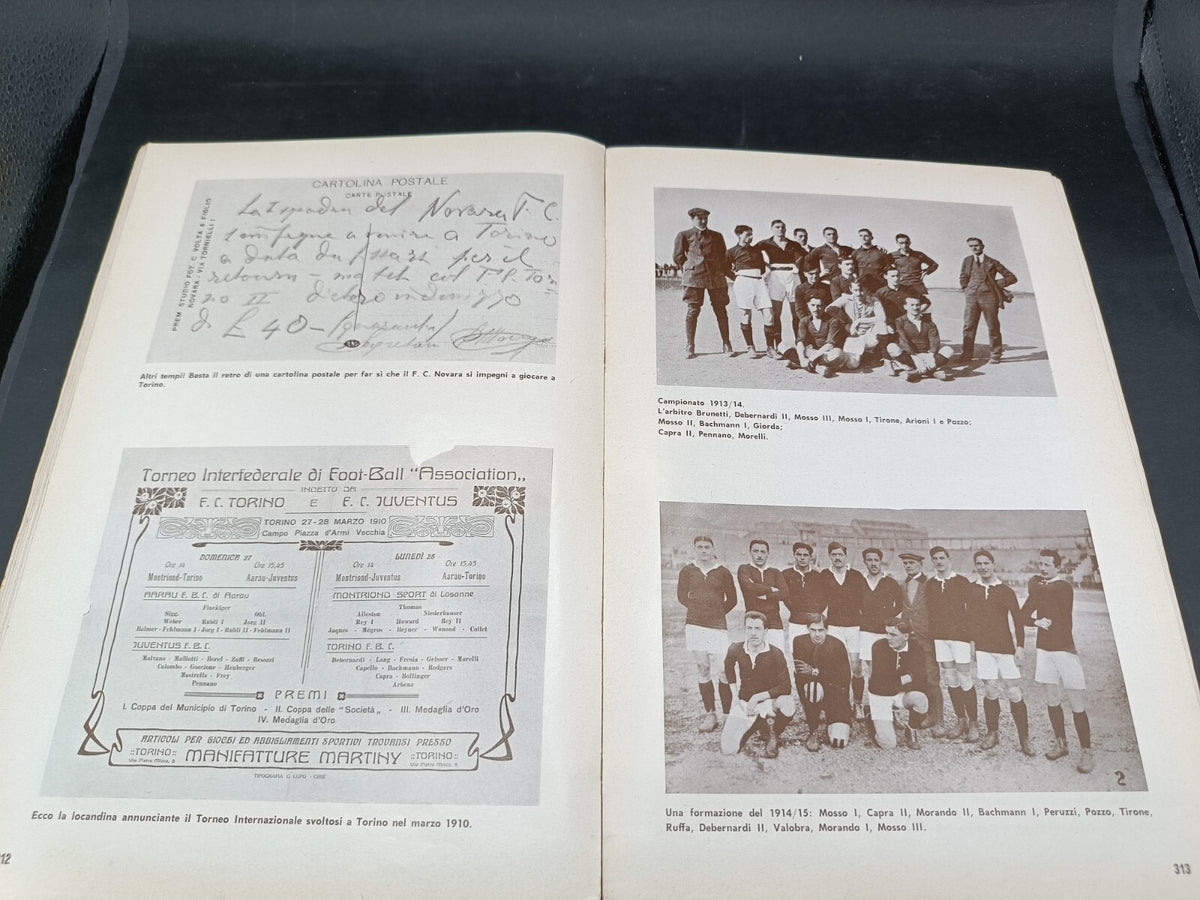 CARTOLINA POSTALE
CARTE POSTALE
PREM. STUDIO FOT. C. VOLTA & FIGLIO
NOVARA - VIA TORNIELLI 1
La Squadra del Novara F. C.
a venire a Torino
a data da per il
retourn - match col F.C. Tori-
no II dietro indennizzo
di £ 40 -
Altri tempi! Basta il retro di una cartolina postale per far sì che il F. C. Novara si impegni a giocare a
Torino.
Torneo Interfederale di Foot-Ball "Association„
INDETTO DA
F. C. TORINO E F. C. JUVENTUS
TORINO 27-28 MARZO 1910
Campo Piazza d'Armi Vecchia
DOMENICA 27
Ore 14 Ore 15,45
Montriond-Torino Aarau-Juventus
AARAU F. B. C. di Aarau
Fluckiger
Sigg. Obl.
Weber Rubli I Jorg II
Helmer - Fehlmann I - Jorg I - Rubli II - Fehlmann II
JUVENTUS F. B. C.
Malvano - Mailietti - Borel - Zuffi - Besozzi
Colombo - Goccione - Heuberger
Mastrella - Frey
Pennano
LUNEDÌ 28
Ore 14 Ore 15,45
Montriond-Juventus Aarau-Torino
MONTRIOND SPORT di Losanne
Thomas
Alleston Niederhauser
Rey I Howard Rey II
Jaques - Mégros - Beyner - Wonond - Collet
TORINO F. B. C.
Debernardi - Lang - Fresia - Geisser - Morelli
Capello - Bachmann - Rodgers
Capra - Bollinger
Arbenz
PREMI
I. Coppa del Municipio di Torino - II. Coppa delle "Società„ - III. Medaglia d'Oro
IV. Medaglia d'Oro
ARTICOLI PER GIOCHI ED ABBIGLIAMENTI SPORTIVI TROVANSI PRESSO
::TORINO:: MANIFATTURE MARTINY ::TORINO::
Via Pietro Micca, 9 Via Pietro Micca, 9
TIPOGRAFIA G. LUPO - CIRIÈ
Ecco la locandina annunciante il Torneo Internazionale svoltosi a Torino nel marzo 1910.
12
Campionato 1913/14.
L'arbitro Brunetti, Debernardi II, Mosso III, Mosso I, Tirone, Arioni I e Pozzo;
Mosso II, Bachmann I, Giorda;
Capra II, Pennano, Morelli.
2
Una formazione del 1914/15: Mosso I, Capra II, Morando II, Bachmann I, Peruzzi, Pozzo, Tirone,
Ruffa, Debernardi II, Valobra, Morando I, Mosso III.
313